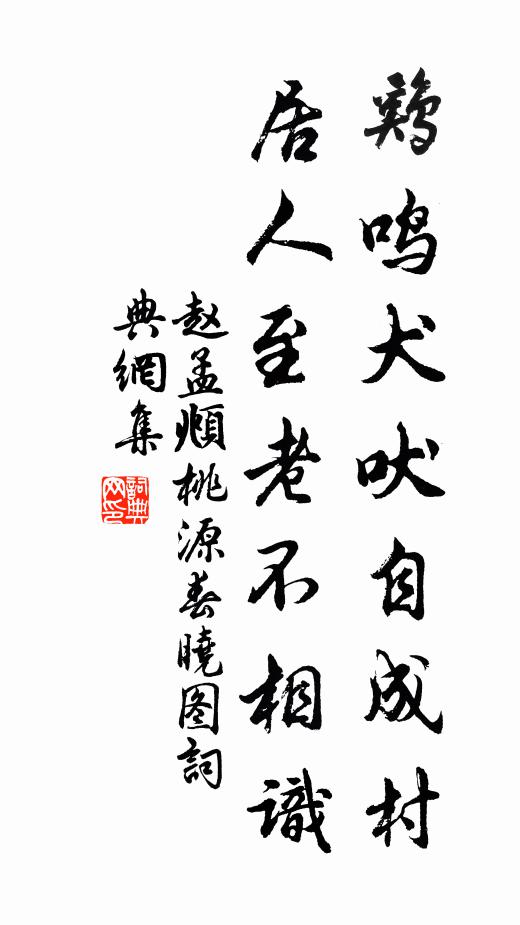 鷄鸣犬吠自成村
居人至老不相識
赵孟頫桃源春曉图詞
典網集
詞典网印